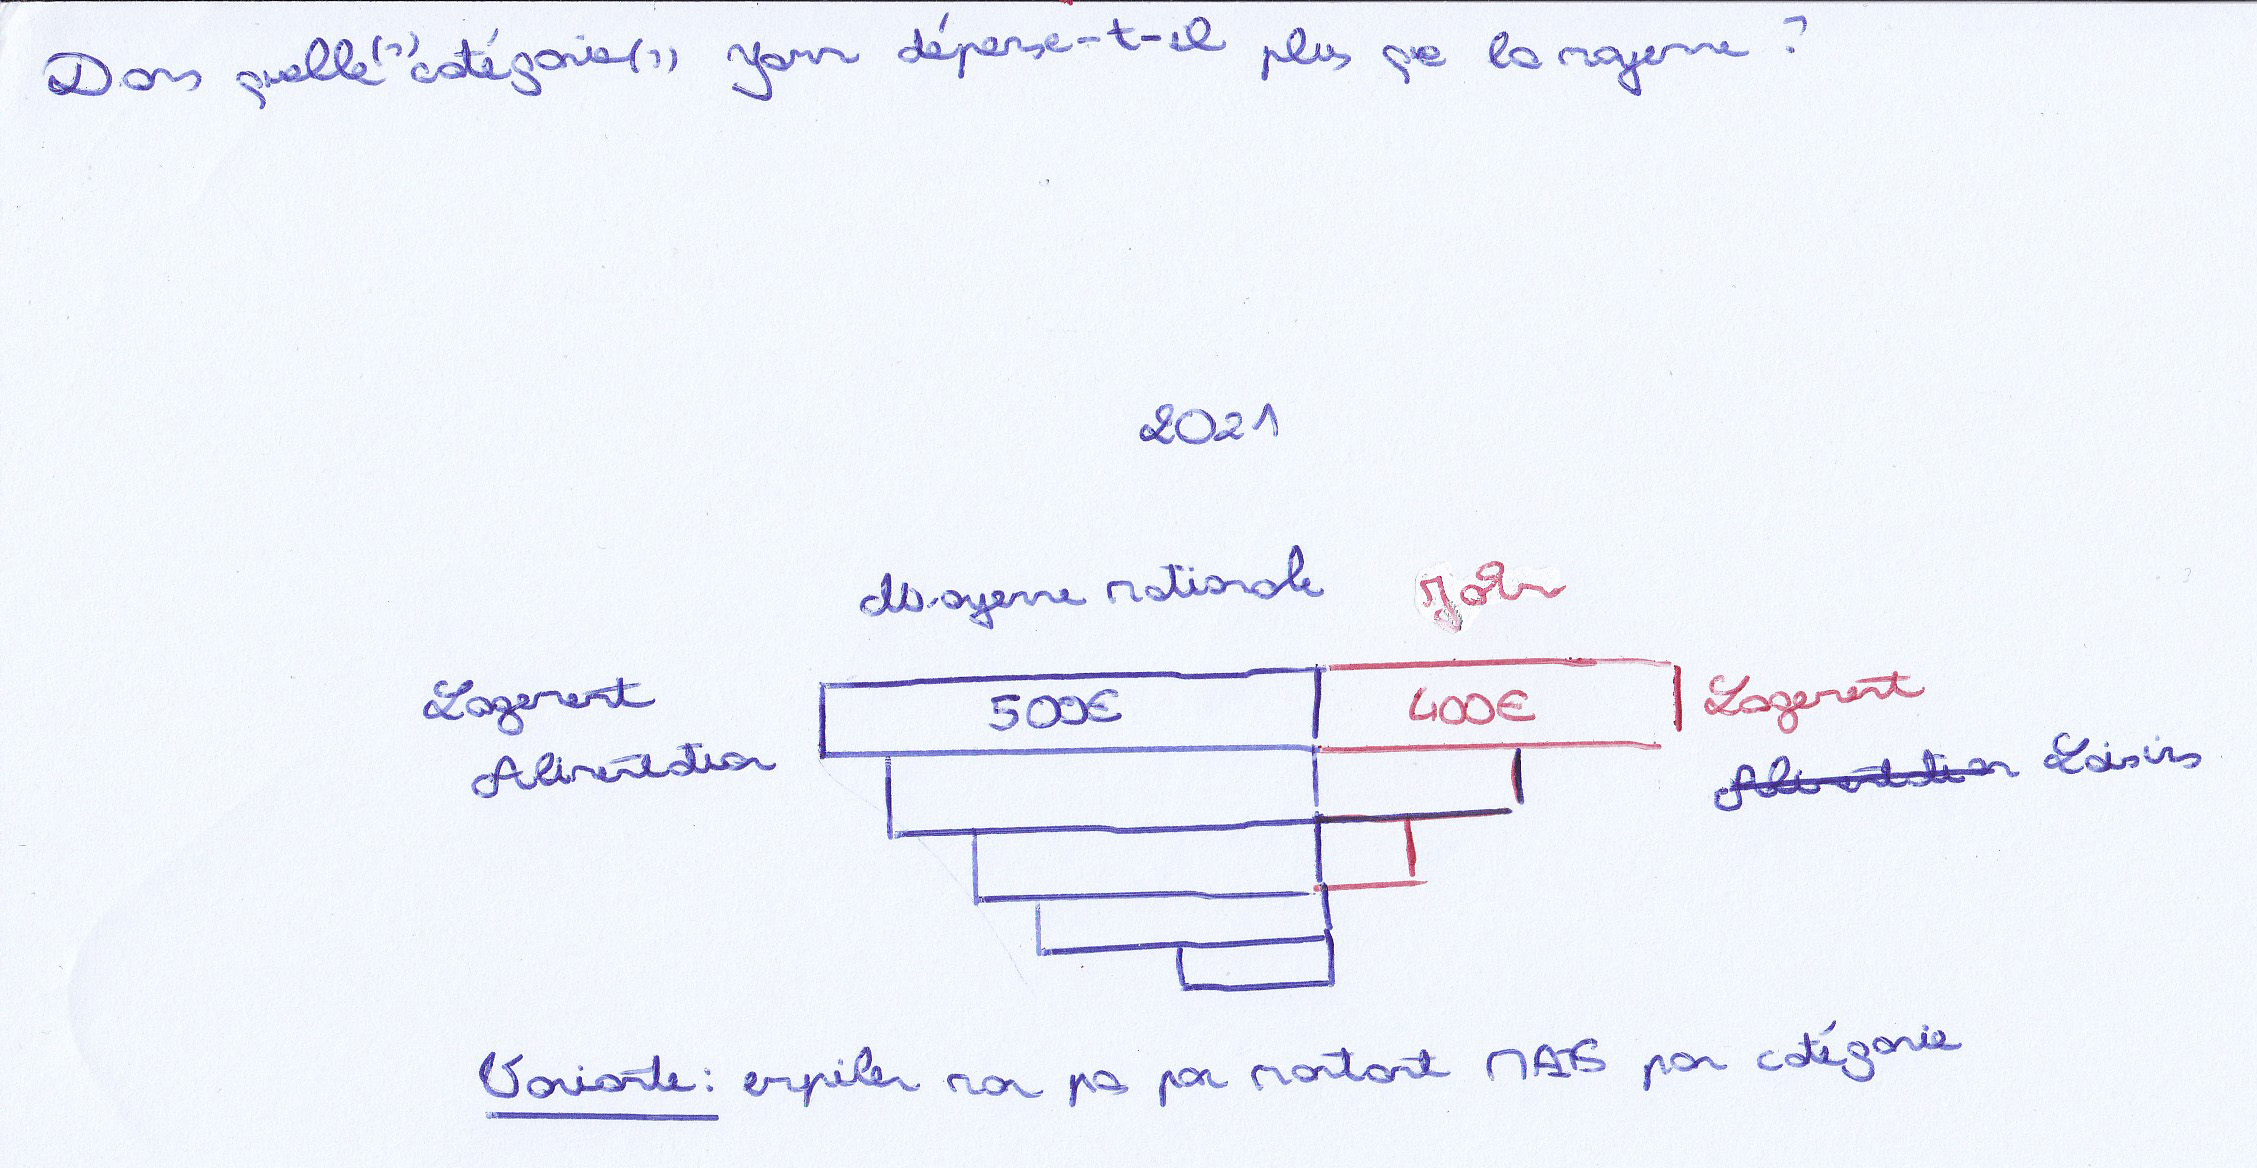 Dans quelle(s) catégorie(s) Yann dépense-t-il plus que la moyenne ?
2021
Moyenne nationale
Logement 500€ 400€ Logement
Alimentation Alimentation Loisirs
Variante : empiler non pas par montant MAIS par catégorie